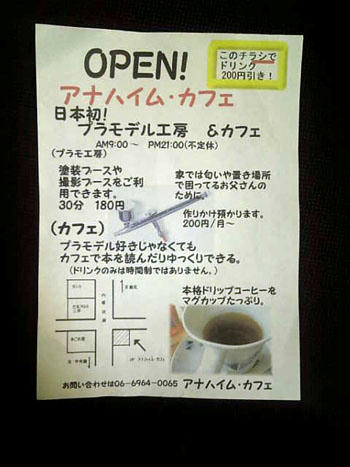 OPEN!
このチラシで
ドリンク
200円引き！
アナハイム・カフェ
日本初！
プラモデル工房　＆カフェ
AM9:00 ～ PM21:00(不定休)
(プラモ工房)
塗装ブースや
撮影ブースをご利
用できます。
30分　180円
家では匂いや置き場所
で困ってるお父さんの
ために
作りかけ預かります。
200円/月～
(カフェ)
プラモデル好きじゃなくても
カフェで本を読んだりゆっくりできる。
(ドリンクのみは時間制ではありません。)
本格ドリップコーヒーを
マグカップたっぷり。
お問い合わせは06-6964-0065 アナハイム・カフェ